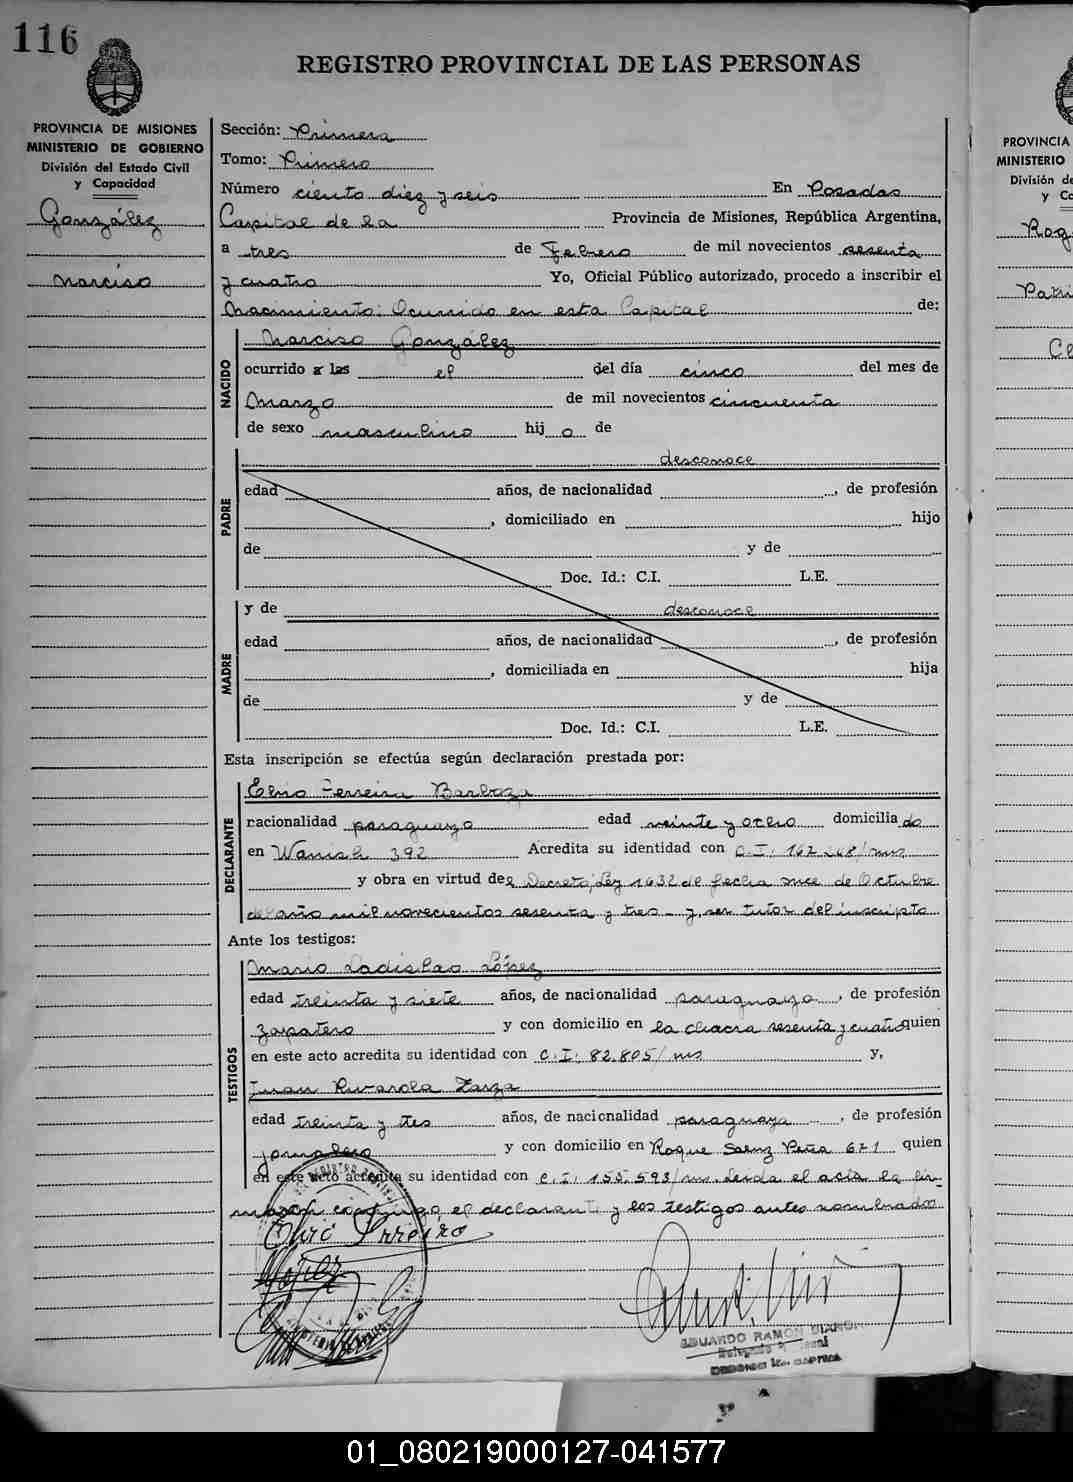 116
REGISTRO PROVINCIAL DE LAS PERSONAS
PROVINCIA DE MISIONES
MINISTERIO DE GOBIERNO
División del Estado Civil
y Capacidad
González
Narciso
Sección: Primera
Tomo: Primero
Número ciento diez y seis En Posadas
Capital de la Provincia de Misiones, República Argentina,
a tres de Febrero de mil novecientos sesenta
y cuatro Yo, Oficial Público autorizado, procedo a inscribir el
Nacimiento: Ocurrido en esta Capital de:
NACIDO
Narciso González
ocurrido a las el del día cinco del mes de
Marzo de mil novecientos cincuenta
de sexo masculino hij o de
PADRE
desconoce
edad años, de nacionalidad , de profesión
, domiciliado en hijo
de y de
Doc. Id.: C.I. L.E.
MADRE
y de desconoce
edad años, de nacionalidad , de profesión
, domiciliada en hija
de y de
Doc. Id.: C.I. L.E.
Esta inscripción se efectúa según declaración prestada por:
DECLARANTE
Elvio Ferreira Barboza
nacionalidad paraguayo edad veinte y ocho domicilia do
en Wanish 392 Acredita su identidad con C.I. 162.268/ms
y obra en virtud del Decreto Ley 1632 de fecha once de Octubre
del año mil novecientos sesenta y tres - y ser tutor del inscripto
Ante los testigos:
TESTIGOS
Mario Ladislao López
edad treinta y siete años, de nacionalidad paraguaya , de profesión
zapatero y con domicilio en la chacra sesenta y cuatro quien
en este acto acredita su identidad con C.I. 82.805/ms y,
Juan Rivarola Zarza
edad treinta y tres años, de nacionalidad paraguaya , de profesión
jornalero y con domicilio en Roque Saenz Peña 671 quien
en este acto acredita su identidad con C.I. 155.593/ms. Leida el acta la fir-
maron conmigo, el declarante y los testigos antes nombrados
López
EDUARDO RAMON
PROVINCIA
MINISTERIO
División de
y Ca
01_080219000127-041577